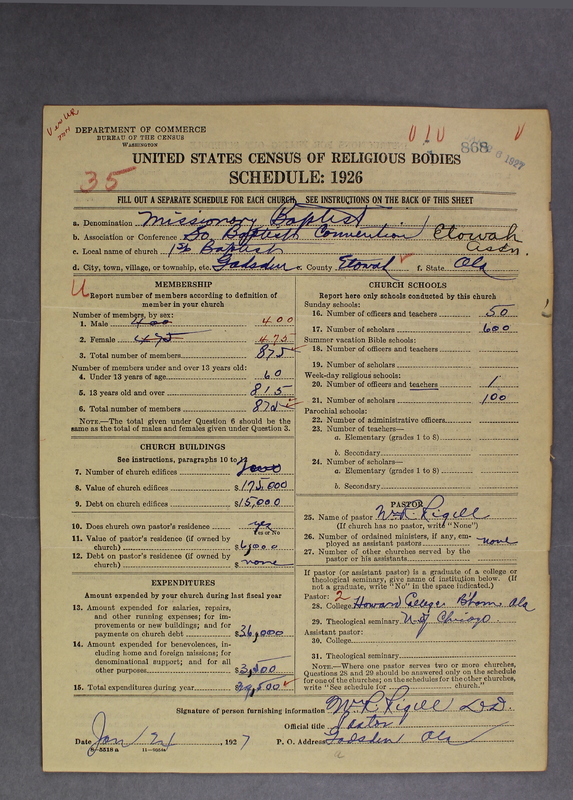 DEPARTMENT OF COMMERCE
BUREAU OF THE CENSUS
WASHINGTON
868
1927
UNITED STATES CENSUS OF RELIGIOUS BODIES
SCHEDULE: 1926
35
FILL OUT A SEPARATE SCHEDULE FOR EACH CHURCH. SEE INSTRUCTIONS ON THE BACK OF THIS SHEET
a. Denomination Missionary Baptist
b. Association or Conference So Baptist Convention Etowah Assn.
c. Local name of church 1st Baptist
d. City, town, village, or township, etc. Gadsden e. County Etowah f. State Ala
MEMBERSHIP
Report number of members according to definition of member in your church
Number of members, by sex:
1. Male 400 400
2. Female 475 475
3. Total number of members 875
Number of members under and over 13 years old:
4. Under 13 years of age 60
5. 13 years old and over 815
6. Total number of members 875
NOTE.—The total given under Question 6 should be the same as the total of males and females given under Question 3.
CHURCH BUILDINGS
See instructions, paragraphs 10 to
7. Number of church edifices
8. Value of church edifices $175,000
9. Debt on church edifices $15,000
10. Does church own pastor's residence yes
Yes or No
11. Value of pastor's residence (if owned by church) $6,000
12. Debt on pastor's residence (if owned by church) $none
EXPENDITURES
Amount expended by your church during last fiscal year
13. Amount expended for salaries, repairs, and other running expenses; for improvements or new buildings; and for payments on church debt $36,000
14. Amount expended for benevolences, including home and foreign missions; for denominational support; and for all other purposes
15. Total expenditures during year
CHURCH SCHOOLS
Report here only schools conducted by this church
Sunday schools:
16. Number of officers and teachers 50
17. Number of scholars 600
Summer vacation Bible schools:
18. Number of officers and teachers
19. Number of scholars
Week-day religious schools:
20. Number of officers and teachers 1
21. Number of scholars 100
Parochial schools:
22. Number of administrative officers
23. Number of teachers—
a. Elementary (grades 1 to 8)
b. Secondary
24. Number of scholars—
a. Elementary (grades 1 to 8)
b. Secondary
PASTOR
25. Name of pastor Wm R. Rigell
(If church has no pastor, write "None")
26. Number of ordained ministers, if any, employed as assistant pastors none
27. Number of other churches served by the pastor or his assistants
If pastor (or assistant pastor) is a graduate of a college or theological seminary, give name of institution below. (If not a graduate, write "No" in the space indicated.)
Pastor: 2
28. College Howard College B'ham Ala
29. Theological seminary U of Chicago
Assistant pastor:
30. College
31. Theological seminary
NOTE.—Where one pastor serves two or more churches, Questions 28 and 29 should be answered only on the schedule for one of the churches; on the schedules for the other churches, write "See schedule for church."
Signature of person furnishing information Wm R Rigell D.D.
Official title Pastor
Date Jan 21, 1927 P. O. Address Gadsden Ala
8—5518 a